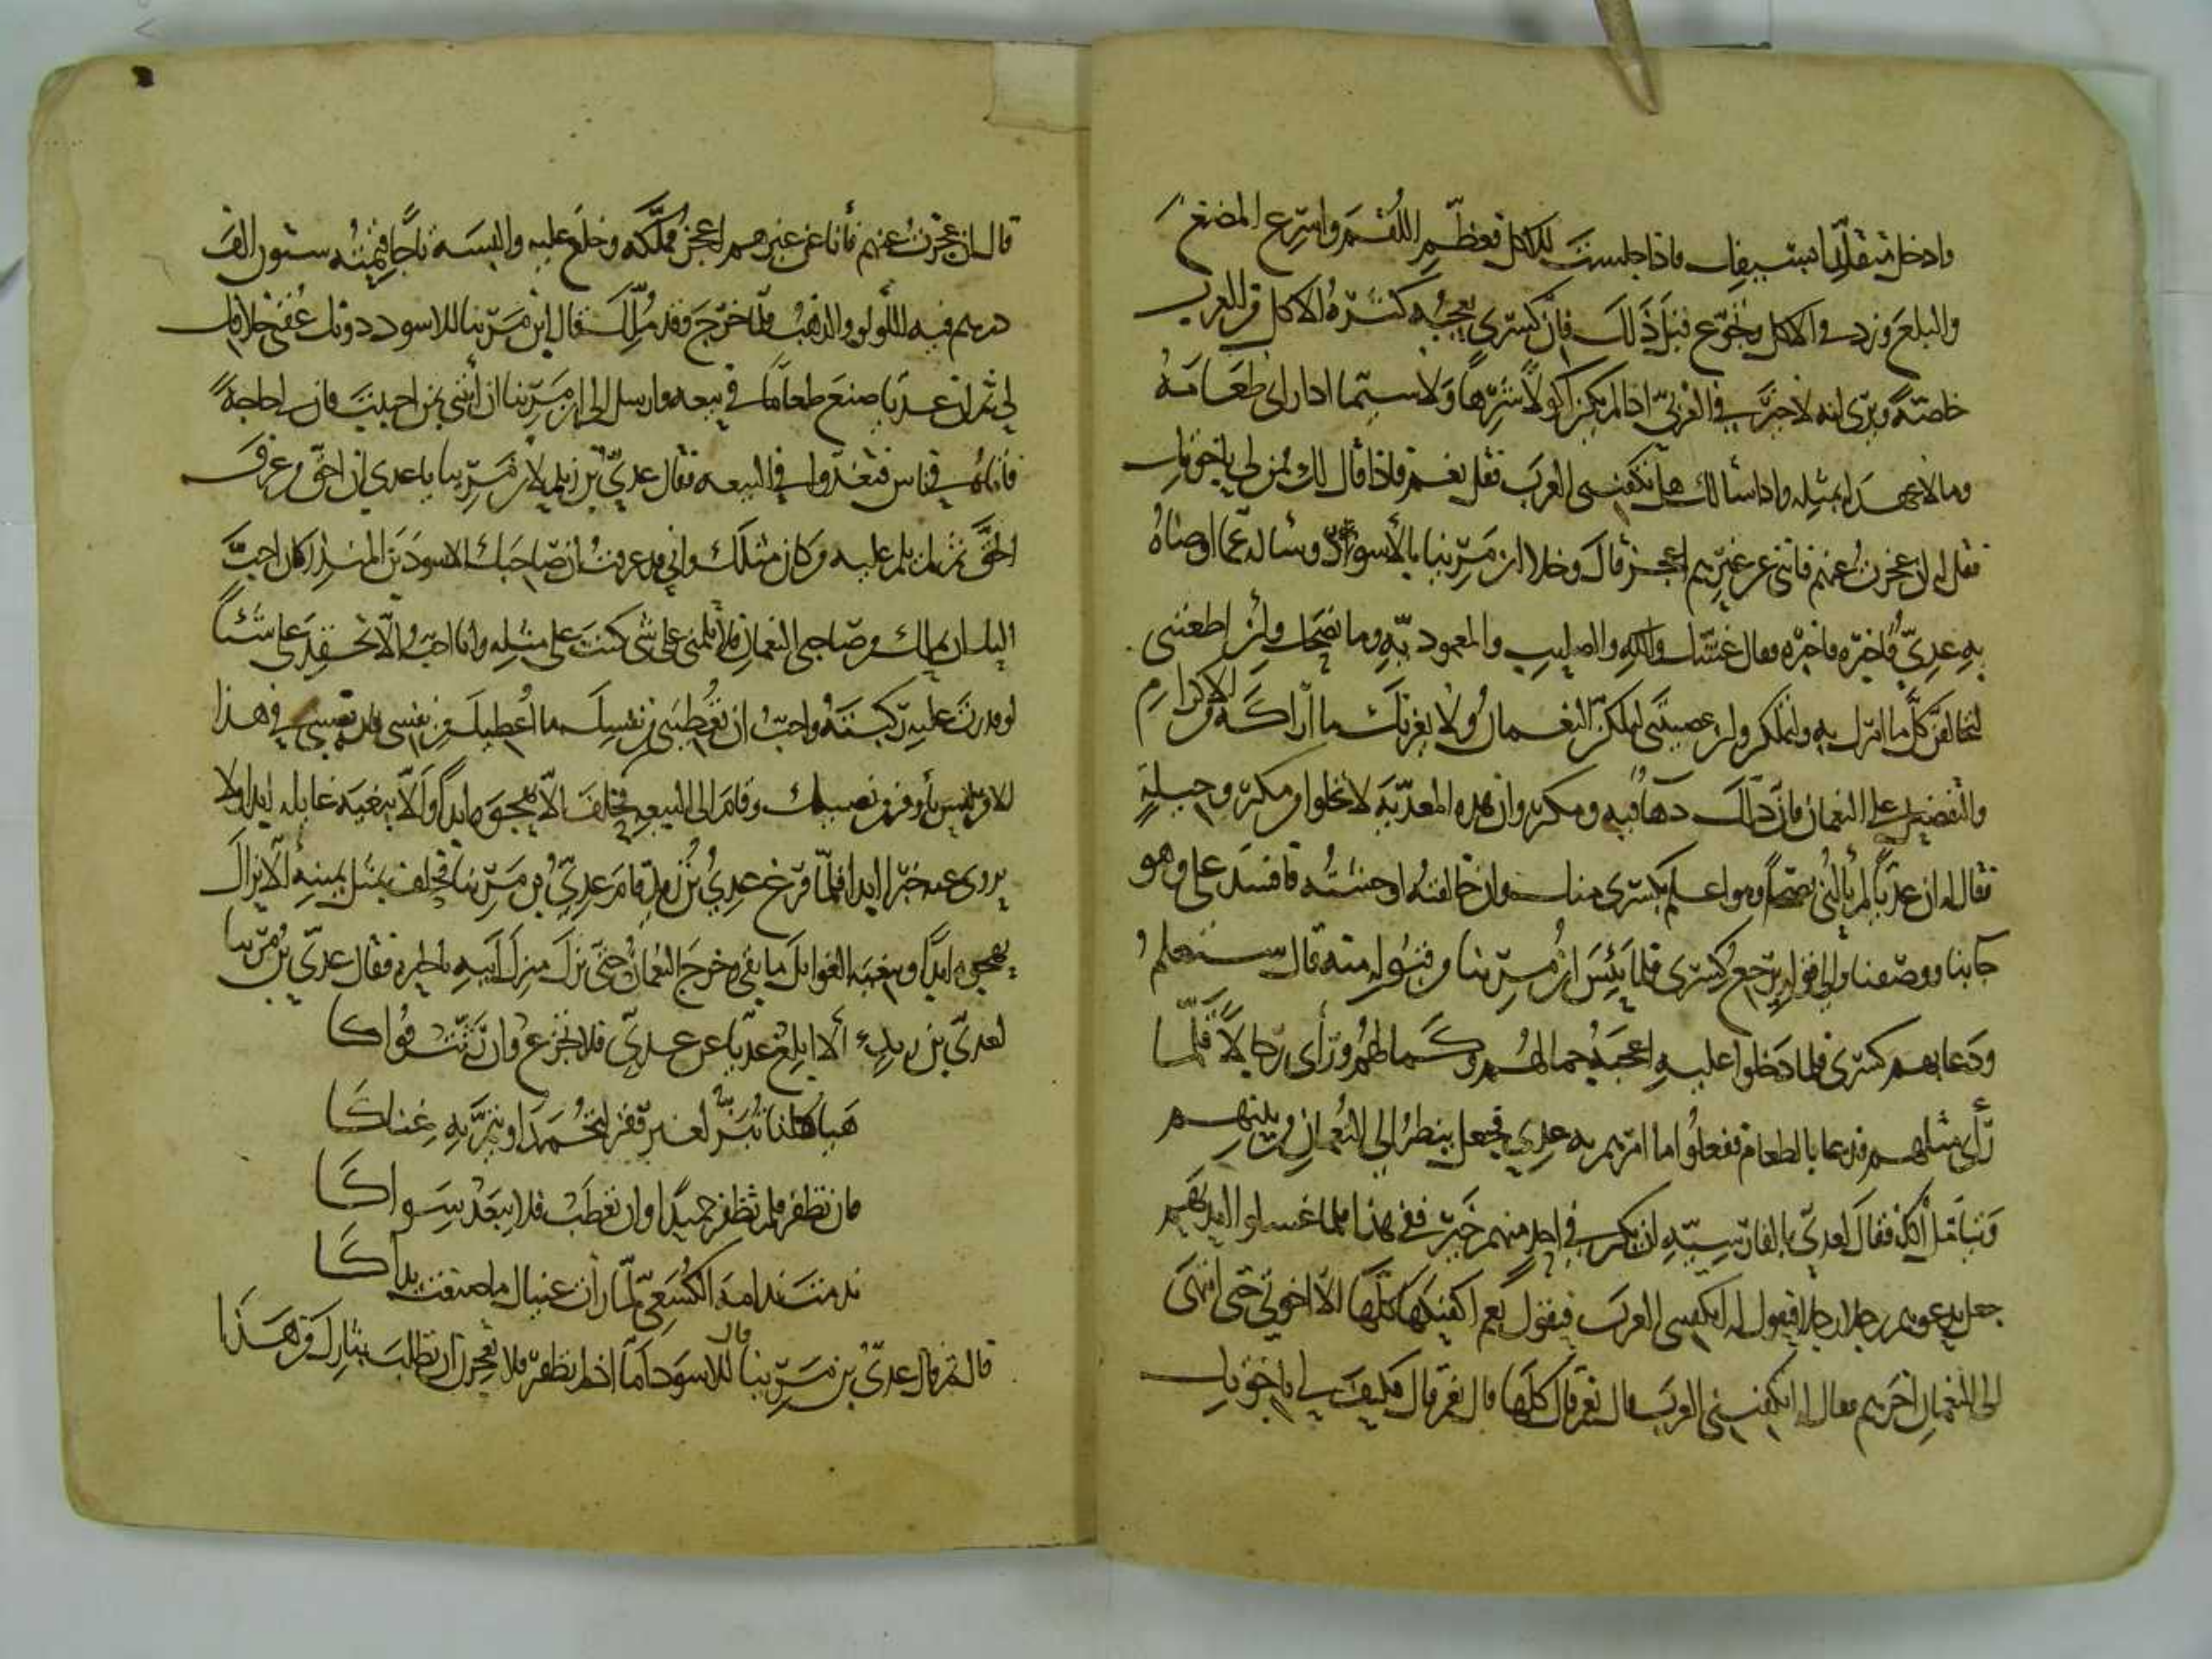 وادخل متقلدا بسيفك واذا جلست للاكل فعظم اللقم واسرع المضغ
والبلع وزد في الاكل وتجوع قبل ذلك فان كسرى يعجبه كثرة الاكل من العرب
خاصة ويرى انه لا خير في العربي اذا لم يكن اكولا شرها ولا سيما اذا راى طعامه
وما لا عهد له بمثله واذا سألك هل تكفيني العرب فقل نعم فاذا قال لك فمن لي باخوتك
فقل له ان عجزت عنهم فانني عن غيرهم اعجز قال وخلا ابن مرينا بالأسود وسأله عما اوصاه
به عدي فاخبره فقال غشك والله والصليب والمعمودية وما نصحك ولئن اطعتني
لتخالفن كل ما امرك به ولتملكن ولئن عصيتني ليملكن النعمان ولا يغرنك ما اراكه من الاكرام
والتفضيل على النعمان فان ذلك دهاء فيه ومكر وان هذه المعدية لا تخلوا من مكر وحيلة
فقال له ان عديا لم يألني نصحا وهو اعلم بكسرى منك وان خالفته اوحشته فافسد علي وهو
جاء بنا ووصفنا والى قوله يرجع كسرى فلما يئس ابن مرينا من قبوله منه قال ستعلم
ودعا بهم كسرى فلما دخلوا عليه اعجبه جمالهم وكمالهم وراى رجالا قلما
رأى مثلهم فدعا بالطعام ففعلوا ما امرهم به عدي فجعل ينظر الى النعمان من بينهم
ويتأمل اكله فقال لعدي بالفارسية ان يكن في احد منهم خير ففي هذا فلما غسلوا ايديهم
جعل يدعو بهم رجلا رجلا فيقول له اتكفيني العرب فيقول نعم اكفيكها كلها الا اخوتي حتى انتهى
الى النعمان اخرهم فقال له اتكفيني العرب قال نعم قال كلها قال نعم قال فكيف لي باخوتك
قال ان عجزت عنهم فأنا عن غيرهم اعجز فملكه وخلع عليه والبسه تاجا قيمته ستون الف
درهم فيه اللؤلؤ والذهب فلما خرج وقد ملك قال ابن مرينا للاسود دونك عقبى خلافك
لي ثم ان عديا صنع طعاما في بيعة وارسل الى ابن مرينا ان ائتني بمن احببت فان لي حاجة
فأتاه في ناس فتغدوا في البيعة فقال عدي بن زيد لابن مرينا يا عدي ان احق من عرف
الحق ثم لم يلم عليه من كان مثلك واني قد عرفت ان صاحبك الاسود بن المنذر كان احب
اليك ان يملك من صاحبي النعمان فلا تلمني على شي كنت على مثله وانا احب الا تحقد علي شيئا
لو قدرت عليه ركبته واحب ان تعطيني من نفسك ما اعطيك من نفسي فان نصيبي في هذا
الامر ليس بأوفر من نصيبك وقام الى البيعة فحلف الا يهجوه ابدا ولا يبغيه غائلة ابدا ولا
يروي عنه خبرا ابدا فلما فرغ عدي بن زيد قام عدي بن مرينا فحلف بمثل يمينه ألا يزال
يهجوه ابدا ويبغيه الغوائل ما بقي وخرج النعمان حتى نزل منزل ابيه بالحيرة فقال عدي بن مرينا
لعدي بن زيد ألا ابلغ عديا عن عدي فلا تجزع وان رثت قواكا
هياكلنا تبر لغير فقر لتحمد او يتم به غناكا
فان تظفر فلم تظفر حميدا وان تعطب فلا يبعد سواكا
ندمت ندامة الكسعي لما رأت عيناك ما صنعت يداكا
قال ثم قال عدي بن مرينا للاسود اما اذا لم تظفر فلا تعجزن ان تطلب بثارك من هذا